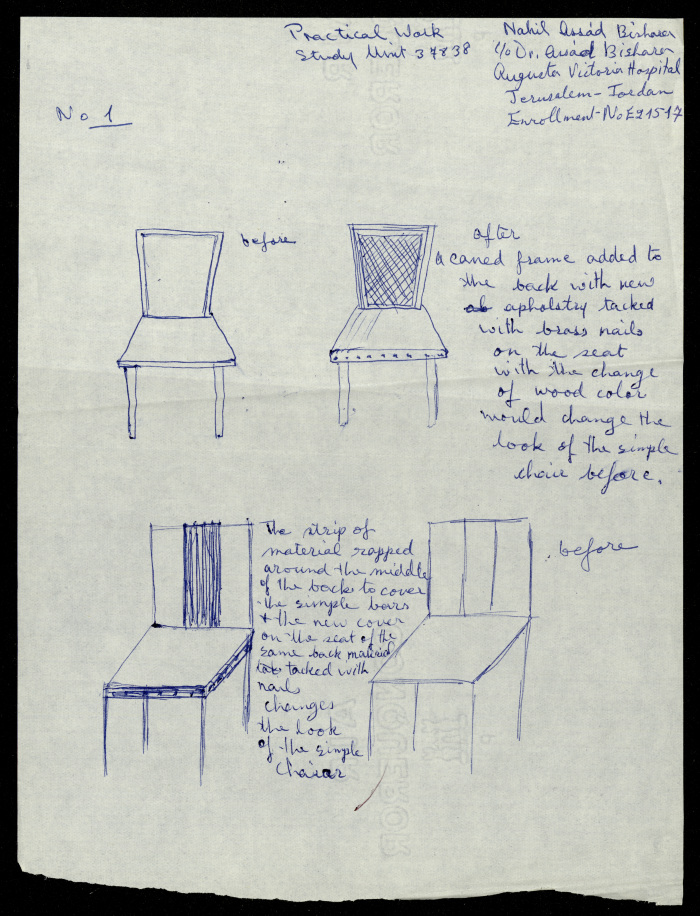 Practical Work
Study Unit 37838
Nahil Assád Bishara
c/o Dr. Assad Bishara
Augusta Victoria Hospital
Jerusalem - Jordan
Enrollment-No E21517
No 1
before
after
a caned frame added to
the back with new
apholstry tacked
with brass nails
on the seat
with the change
of wood color
would change the
look of the simple
chair before.
The strip of
material rapped
around the middle
of the back to cover
the simple bars
+ the new cover
on the seat of the
same back material
tacked with
nails
changes
the look
of the simple
chair
before